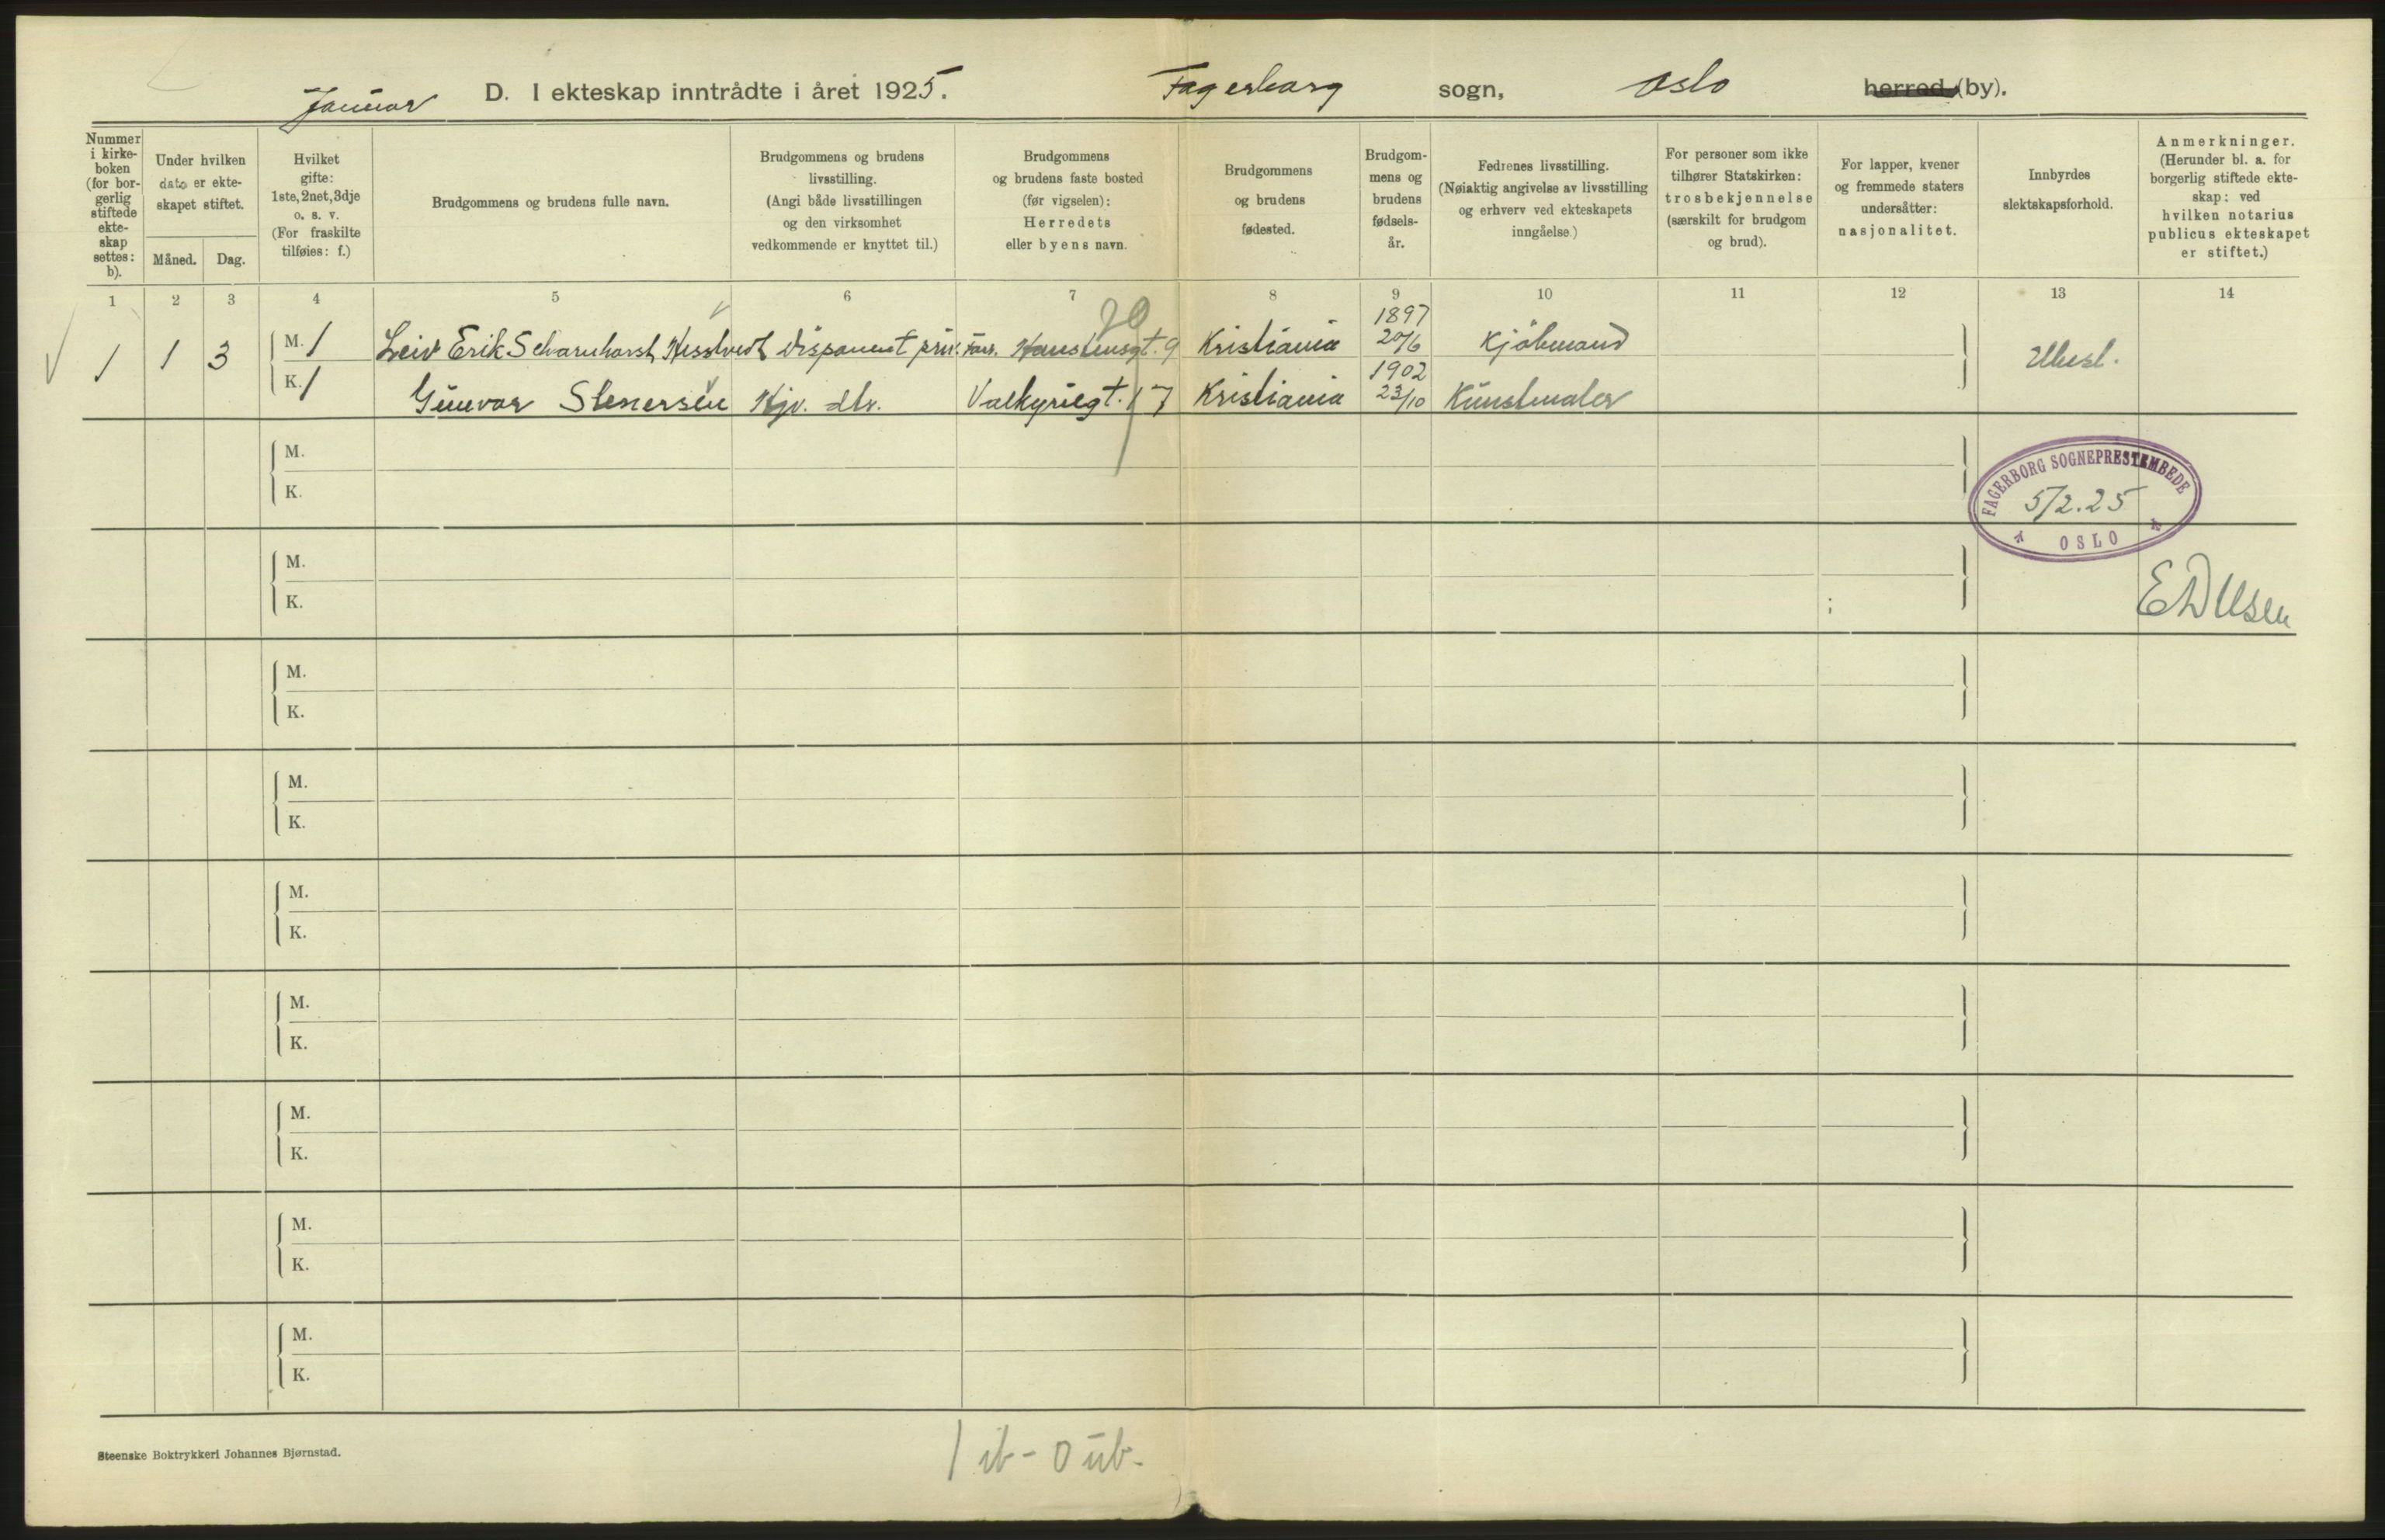 Januar D. I ekteskap inntrådte i året 1925. Fagerborg sogn, Oslo herred (by).
Nummer i kirke- boken (for bor- gerlig stiftede ekte- skap settes: b).
Under hvilken dato er ekte- skapet stiftet.
Måned. Dag.
Hvilket gifte: 1ste, 2net, 3dje o. s. v. (For fraskilte tilføies: f.)
Brudgommens og brudens fulle navn.
Brudgommens og brudens livsstilling. (Angi både livsstillingen og den virksomhet vedkommende er knyttet til.)
Brudgommens og brudens faste bosted (før vigselen): Herredets eller byens navn.
Brudgommens og brudens fødested.
Brudgom- mens og brudens fødsels- år.
Fedrenes livsstilling. (Nøiaktig angivelse av livsstilling og erhverv ved ekteskapets inngåelse.)
For personer som ikke tilhører Statskirken: trosbekjennelse (særskilt for brudgom og brud).
For lapper, kvener og fremmede staters undersåtter: nasjonalitet.
Innbyrdes slektskapsforhold.
Anmerkninger. (Herunder bl. a. for borgerlig stiftede ekte- skap: ved hvilken notarius publicus ekteskapet er stiftet.)
1 2 3 4 5 6 7 8 9 10 11 12 13 14
20
1 1 3 M. 1 Leiv Erik Scharnhorst Disponent Kristiania 1897 20/6 Kjöbmand Ubesl.
K. 1 Gunvor Stenersen Hjv. dtr. Valkyriegt. 17 Kristiania 1902 23/10 Kunstmaler
M.
K.
FAGERBORG SOGNEPRESTEMBEDE
5/2.25
OSLO
M.
K.
M.
K.
M.
K.
M.
K.
M.
K.
M.
K.
M.
K.
M.
K.
Steenske Boktrykkeri Johannes Bjørnstad.
1 ib - 0 ub.